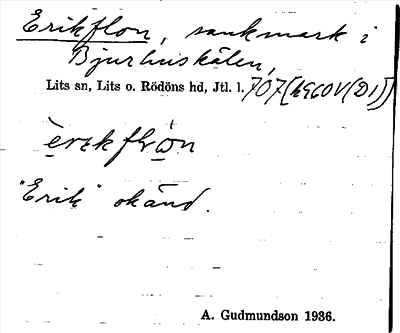 Erikflon, sankmark i
Bjurhuskälen,
Lits sn, Lits o. Rödöns hd, Jtl. l. 707
èrɪkflɷn
"Erik" okänd.
A. Gudmundson 1936.